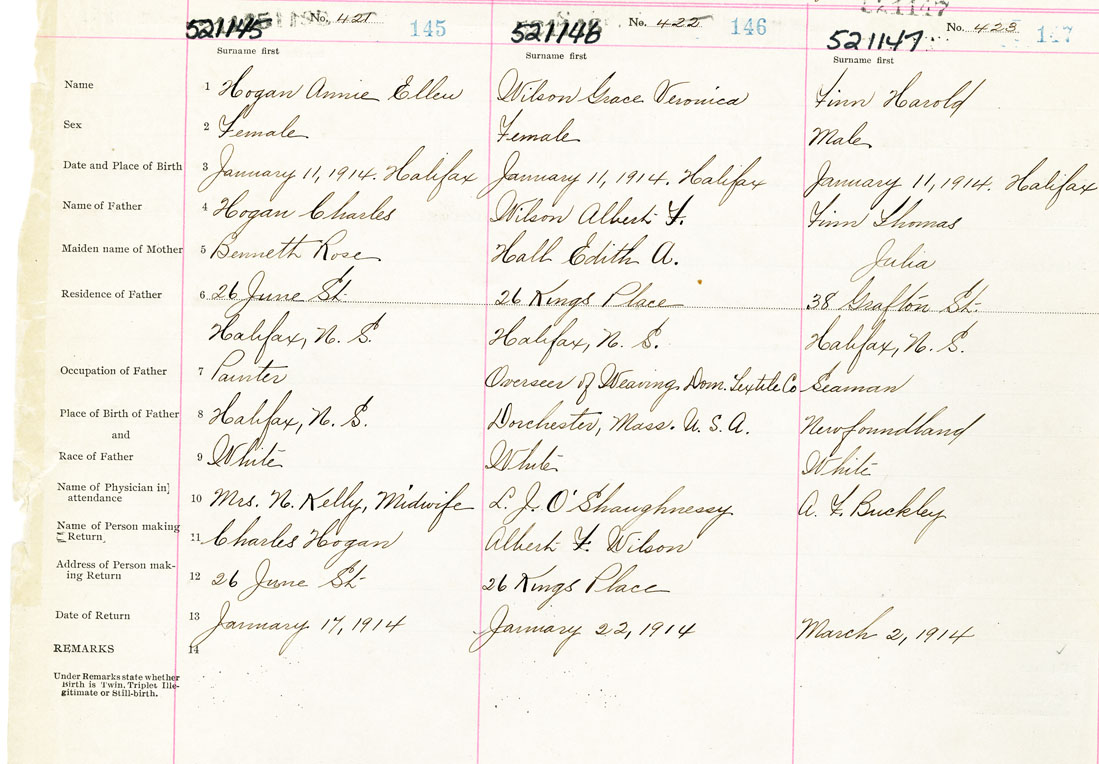 521145 No. 421 145
521148 No. 422 146
521147 No. 423 147
Surname first Surname first Surname first
Name 1 Hogan Annie Ellen Wilson Grace Veronica Finn Harold
Sex 2 Female Female Male
Date and Place of Birth 3 January 11, 1914. Halifax January 11, 1914. Halifax January 11, 1914. Halifax
Name of Father 4 Hogan Charles Wilson Albert F. Finn Thomas
Maiden name of Mother 5 Bennett Rose Hall Edith A. Julia
Residence of Father 6 26 June St. 26 Kings Place 38 Grafton St.
Halifax, N. S. Halifax, N. S. Halifax, N. S.
Occupation of Father 7 Painter Overseer of Weaving Dom. Textile Co Seaman
Place of Birth of Father 8 Halifax, N. S. Dorchester, Mass. U. S. A. Newfoundland
and
Race of Father 9 White White White
Name of Physician in
attendance 10 Mrs. N. Kelly, Midwife L. J. O'Shaughnessy A. F. Buckley
Name of Person making
Return 11 Charles Hogan Albert F. Wilson
Address of Person mak-
ing Return 12 26 June St. 26 Kings Place
Date of Return 13 January 17, 1914 January 22, 1914 March 2, 1914
REMARKS 14
Under Remarks state whether
Birth is Twin, Triplet Ille-
gitimate or Still-birth.